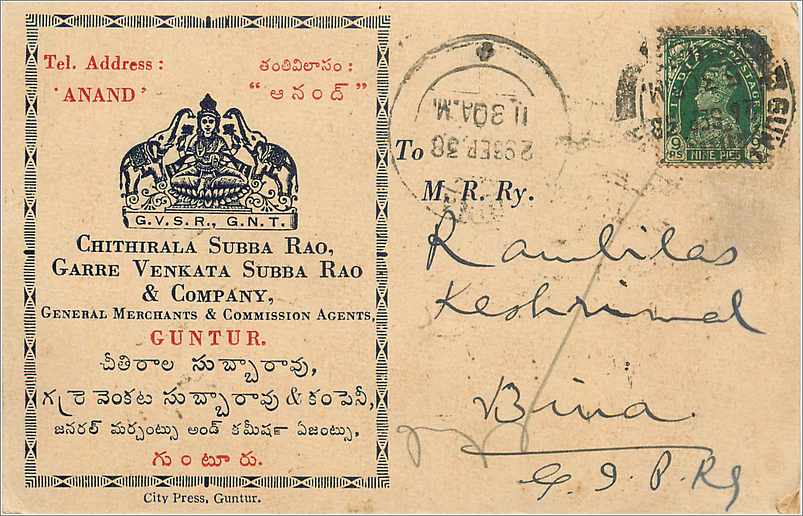 Tel. Address :
'ANAND'
తంతివిలాసం :
“ ఆనంద్ ”
G.V.S.R., G.N.T.
CHITHIRALA SUBBA RAO,
GARRE VENKATA SUBBA RAO
& COMPANY,
GENERAL MERCHANTS & COMMISSION AGENTS,
GUNTUR.
చీతిరాల సుబ్బారావు,
గఱ్ఱె వెంకట సుబ్బారావు & కంపెనీ,
జనరల్ మర్చంట్సు అండ్ కమీషన్ ఏజంట్సు,
గుంటూరు.
City Press, Guntur.
11.30A.M.
29SEP.38
INDIA POSTAGE
9 PS NINE PIES 9
To
M. R. Ry.
Rambilas
Keshrimal
Bina
G. I. P. Ry